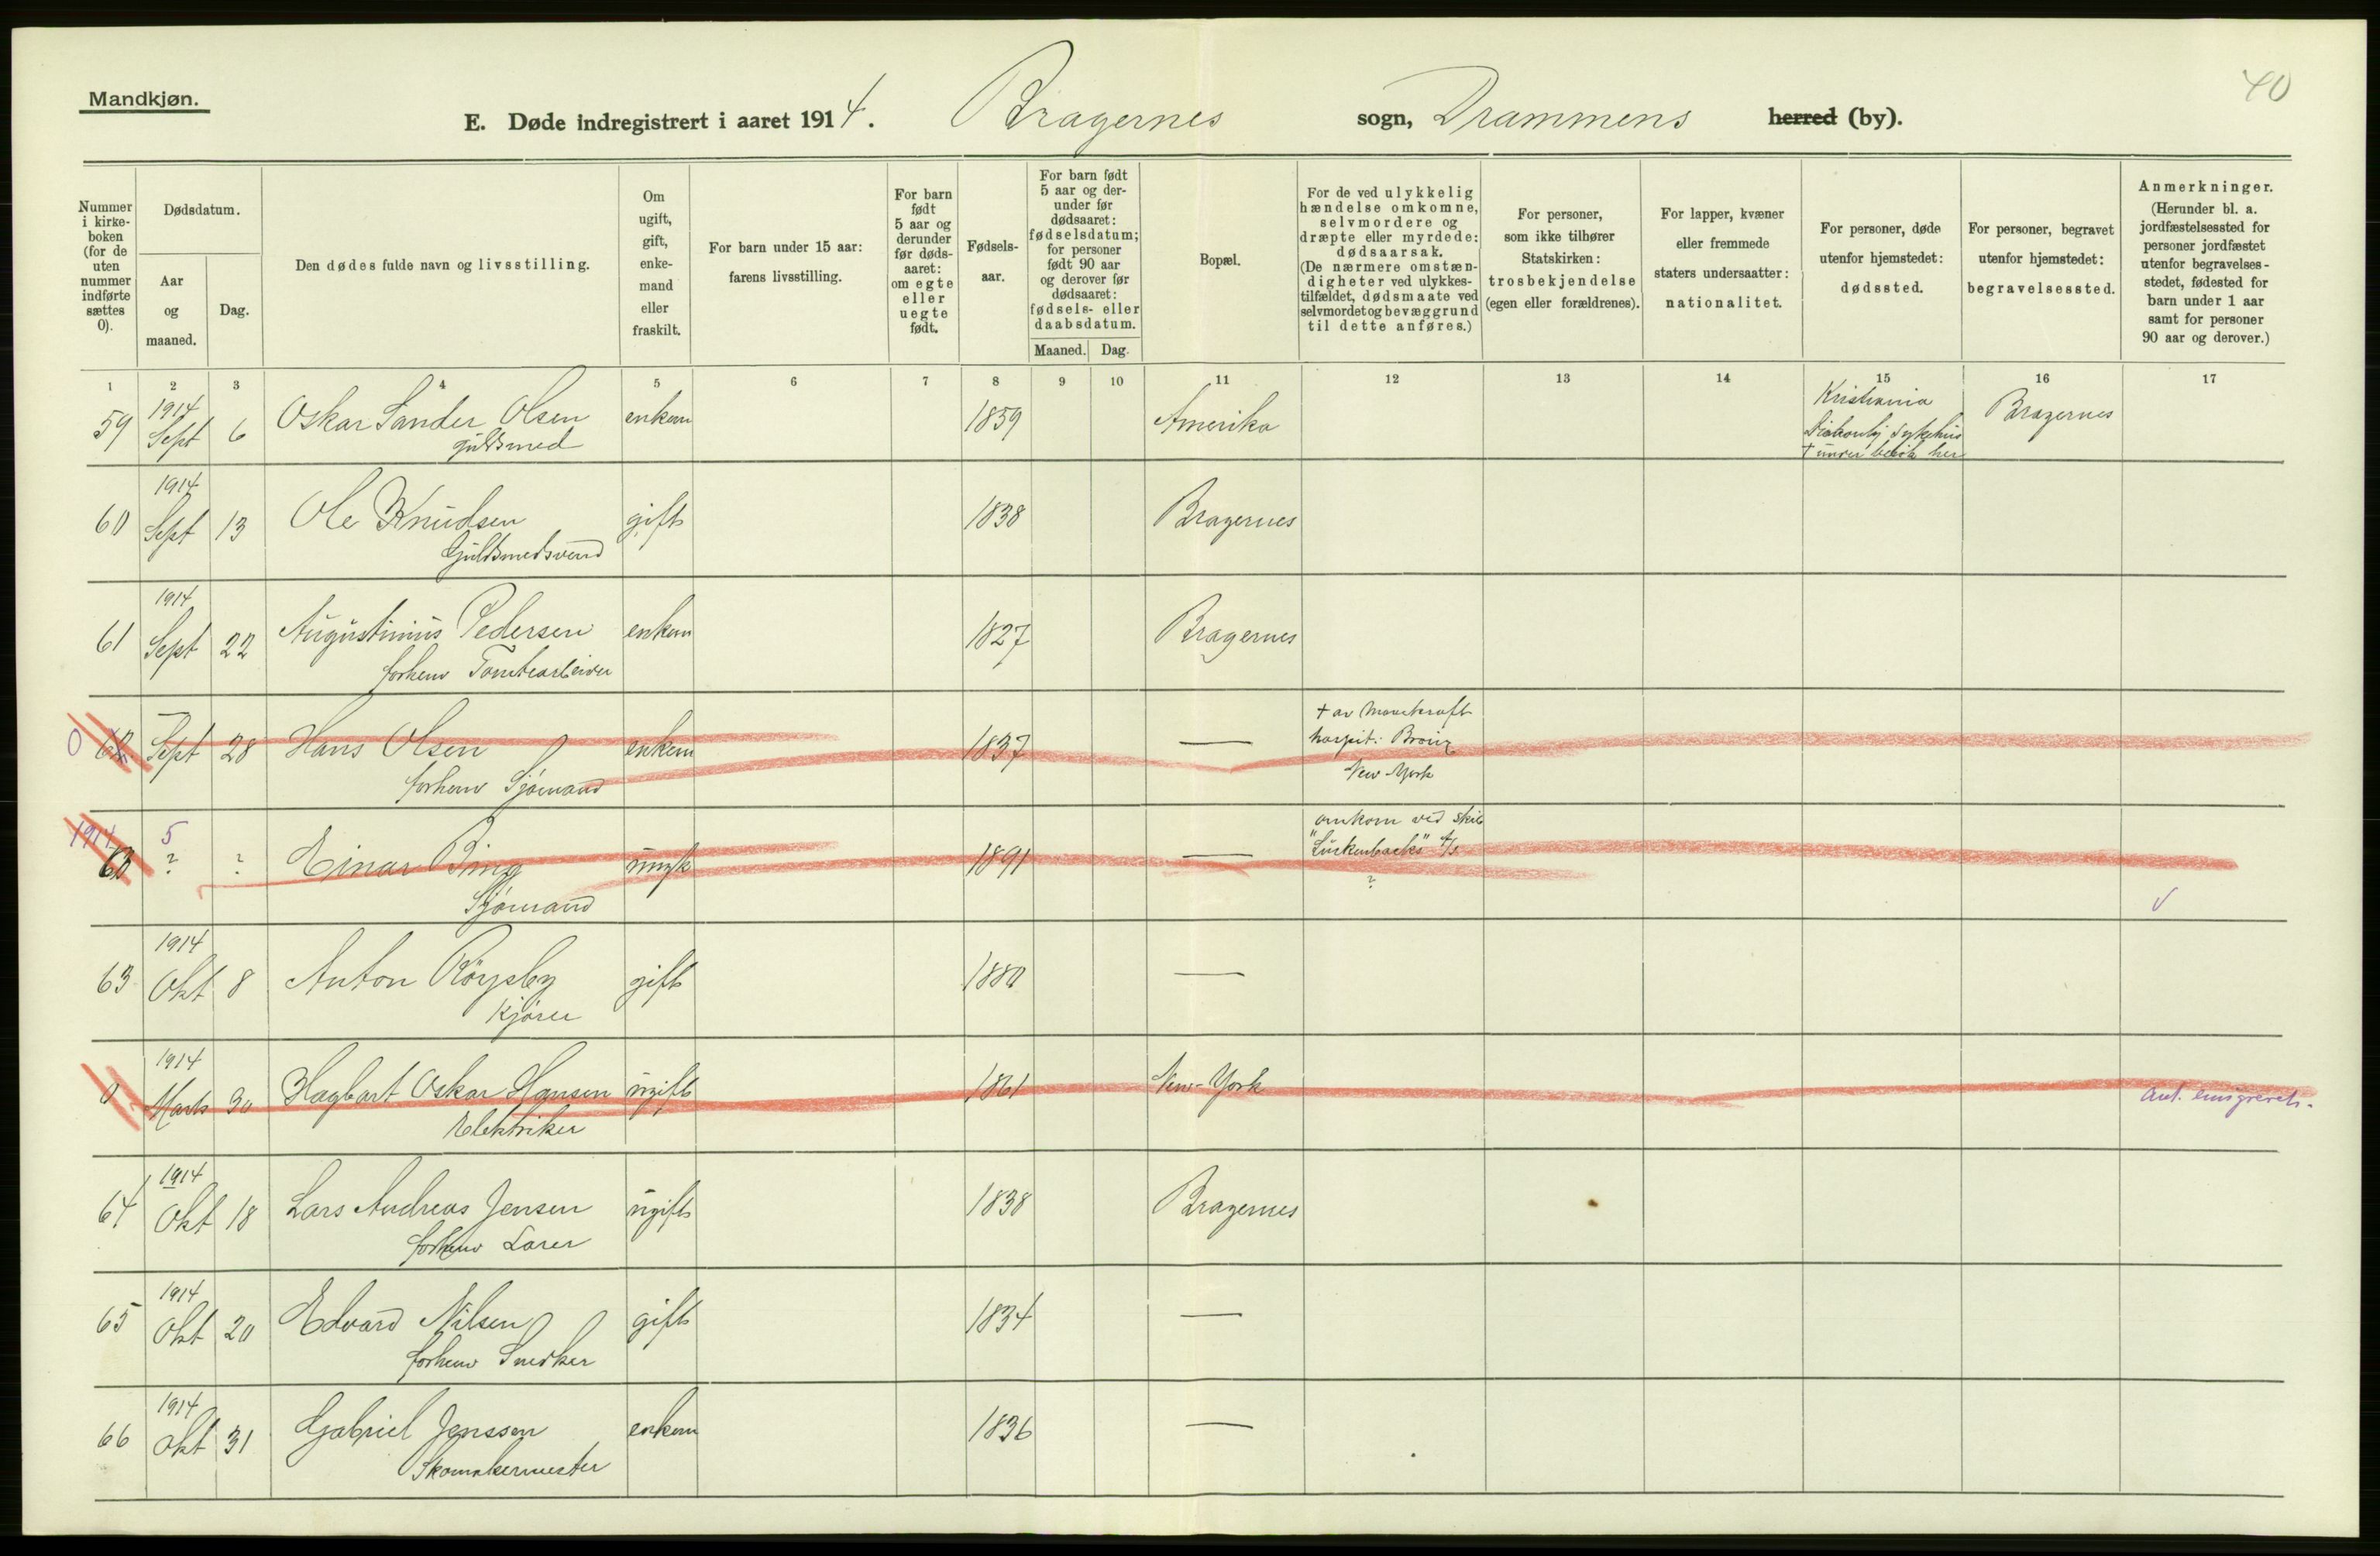 40
Mandkjøn.
E. Døde indregistrert i aaret 1914. Bragernes sogn, Drammens herred (by).
Nummer i kirkeboken (for de uten nummer indførte sættes 0).
Dødsdatum.
Aar og maaned.
Dag.
Den dødes fulde navn og livsstilling.
Om ugift, gift, enkemand eller fraskilt.
For barn under 15 aar: farens livsstilling.
For barn født 5 aar og derunder før dødsaaret: om egte eller uegte født.
Fødselsaar.
For barn født 5 aar og derunder før dødsaaret: fødselsdatum; for personer født 90 aar og derover før dødsaaret: fødsels- eller daabsdatum.
Maaned. Dag.
Bopæl.
For de ved ulykkelig hændelse omkomne, selvmordere og dræpte eller myrdede: dødsaarsak. (De nærmere omstændigheter ved ulykkestilfældet, dødsmaate ved selvmordet og bevæggrund til dette anføres.)
For personer, som ikke tilhører Statskirken: trosbekjendelse (egen eller forældrenes).
For lapper, kvæner eller fremmede staters undersaatter: nationalitet.
For personer, døde utenfor hjemstedet: dødssted.
For personer, begravet utenfor hjemstedet: begravelsessted.
Anmerkninger. (Herunder bl. a. jordfæstelsessted for personer jordfæstet utenfor begravelsesstedet, fødested for barn under 1 aar samt for personer 90 aar og derover.)
1 2 3 4 5 6 7 8 9 10 11 12 13 14 15 16 17
59 1914 Sept 6 Oskar Sander Olsen enkem 1859 Amerika Kristiania Bragernes
guldsmed sykehus
† under besøk her
1914
60 Sept 13 Ole Knudsen gift 1838 Bragernes
Guldsmedsvend
1914
61 Sept 22 Augustinius Pedersen enkem 1827 Bragernes
forhenv Tomtearbeider
† av
0 62 Sept 28 Hans Olsen enkem 1837 — hospit:
forhenv Sjømand New York
1914 5 omkom ved skib
63 ? ? Einar Bing ungk 1891 — "Luckenbachs"
Sjømand ?
1914
63 Okt 8 Anton Røysby gift 1880 —
Kjører
1914
0 Marts 30 Hagbart Oskar Hansen ugift 1861 New-York Ant. emigreret.
Elektriker
1914
64 Okt 18 Lars Andreas Jensen ugift 1838 Bragernes
forhenv Lærer
1914
65 Okt 20 Edvard Nilsen gift 1834 —
forhenv Snedker
1914
66 Okt 31 Gabriel Jenssen enkem 1836 —
Skomakermester